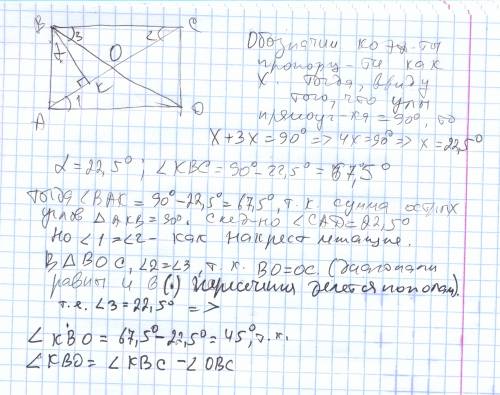 B
C
A
O
D
K
α
3
2
1
Обозначим коэф-ты
пропорц-ти как
X. Тогда, ввиду
того, что углы
прямоуг-ка = 90°, то
X+3X=90° => 4X=90° => X=22,5°
α=22,5°; ∠KBC=90°-22,5°=67,5°
Тогда ∠BAK=90°-22,5°=67,5°, т.к. сумма острых
углов ΔAKB=90°. След-но ∠CAD=22,5°
Но ∠1=∠2- как накрест лежащие.
В ΔBOC, ∠2=∠3, т.к. BO=OC. (Диагонали
равны и в (·) пересечения делятся пополам).
т.е. ∠3=22,5° =>
∠KBO=67,5°-22,5°=45°, т.к.
∠KBO=∠KBC-∠OBC